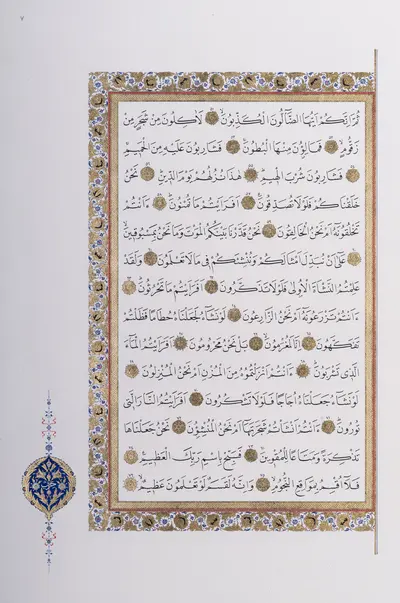 ٧
ثُمَّ اِنَّكُمْ اَيُّهَا الضَّٓالُّونَ الْمُكَذِّبُونَ لَاٰكِلُونَ مِنْ شَجَرٍ مِنْ
زَقُّومٍ فَمَالِؤُنَ مِنْهَا الْبُطُونَ فَشَارِبُونَ عَلَيْهِ مِنَ الْحَمِيمِ
فَشَارِبُونَ شُرْبَ الْهِيمِ هٰذَا نُزُلُهُمْ يَوْمَ الدِّينِ نَحْنُ
خَلَقْنَاكُمْ فَلَوْلَا تُصَدِّقُونَ اَفَرَاَيْتُمْ مَا تُمْنُونَ ءَاَنْتُمْ
تَخْلُقُونَهُٓ اَمْ نَحْنُ الْخَالِقُونَ نَحْنُ قَدَّرْنَا بَيْنَكُمُ الْمَوْتَ وَمَا نَحْنُ بِمَسْبُوقِينَ
عَلٰٓى اَنْ نُبَدِّلَ اَمْثَالَكُمْ وَنُنْشِئَكُمْ فِي مَا لَا تَعْلَمُونَ وَلَقَدْ
عَلِمْتُمُ النَّشْاَةَ الْاُولٰى فَلَوْلَا تَذَكَّرُونَ اَفَرَاَيْتُمْ مَا تَحْرُثُونَ
ءَاَنْتُمْ تَزْرَعُونَهُٓ اَمْ نَحْنُ الزَّارِعُونَ لَوْ نَشَٓاءُ لَجَعَلْنَاهُ حُطَامًا فَظَلْتُمْ
تَفَكَّهُونَ اِنَّا لَمُغْرَمُونَ بَلْ نَحْنُ مَحْرُومُونَ اَفَرَاَيْتُمُ الْمَٓاءَ
الَّذِي تَشْرَبُونَ ءَاَنْتُمْ اَنْزَلْتُمُوهُ مِنَ الْمُزْنِ اَمْ نَحْنُ الْمُنْزِلُونَ
لَوْ نَشَٓاءُ جَعَلْنَاهُ اُجَاجًا فَلَوْلَا تَشْكُرُونَ اَفَرَاَيْتُمُ النَّارَ الَّتِي
تُورُونَ ءَاَنْتُمْ اَنْشَأْتُمْ شَجَرَتَهَٓا اَمْ نَحْنُ الْمُنْشِؤُنَ نَحْنُ جَعَلْنَاهَا
تَذْكِرَةً وَمَتَاعًا لِلْمُقْوِينَ فَسَبِّحْ بِاسْمِ رَبِّكَ الْعَظِيمِ
فَلَٓا اُقْسِمُ بِمَوَاقِعِ النُّجُومِ وَاِنَّهُ لَقَسَمٌ لَوْ تَعْلَمُونَ عَظِيمٌ